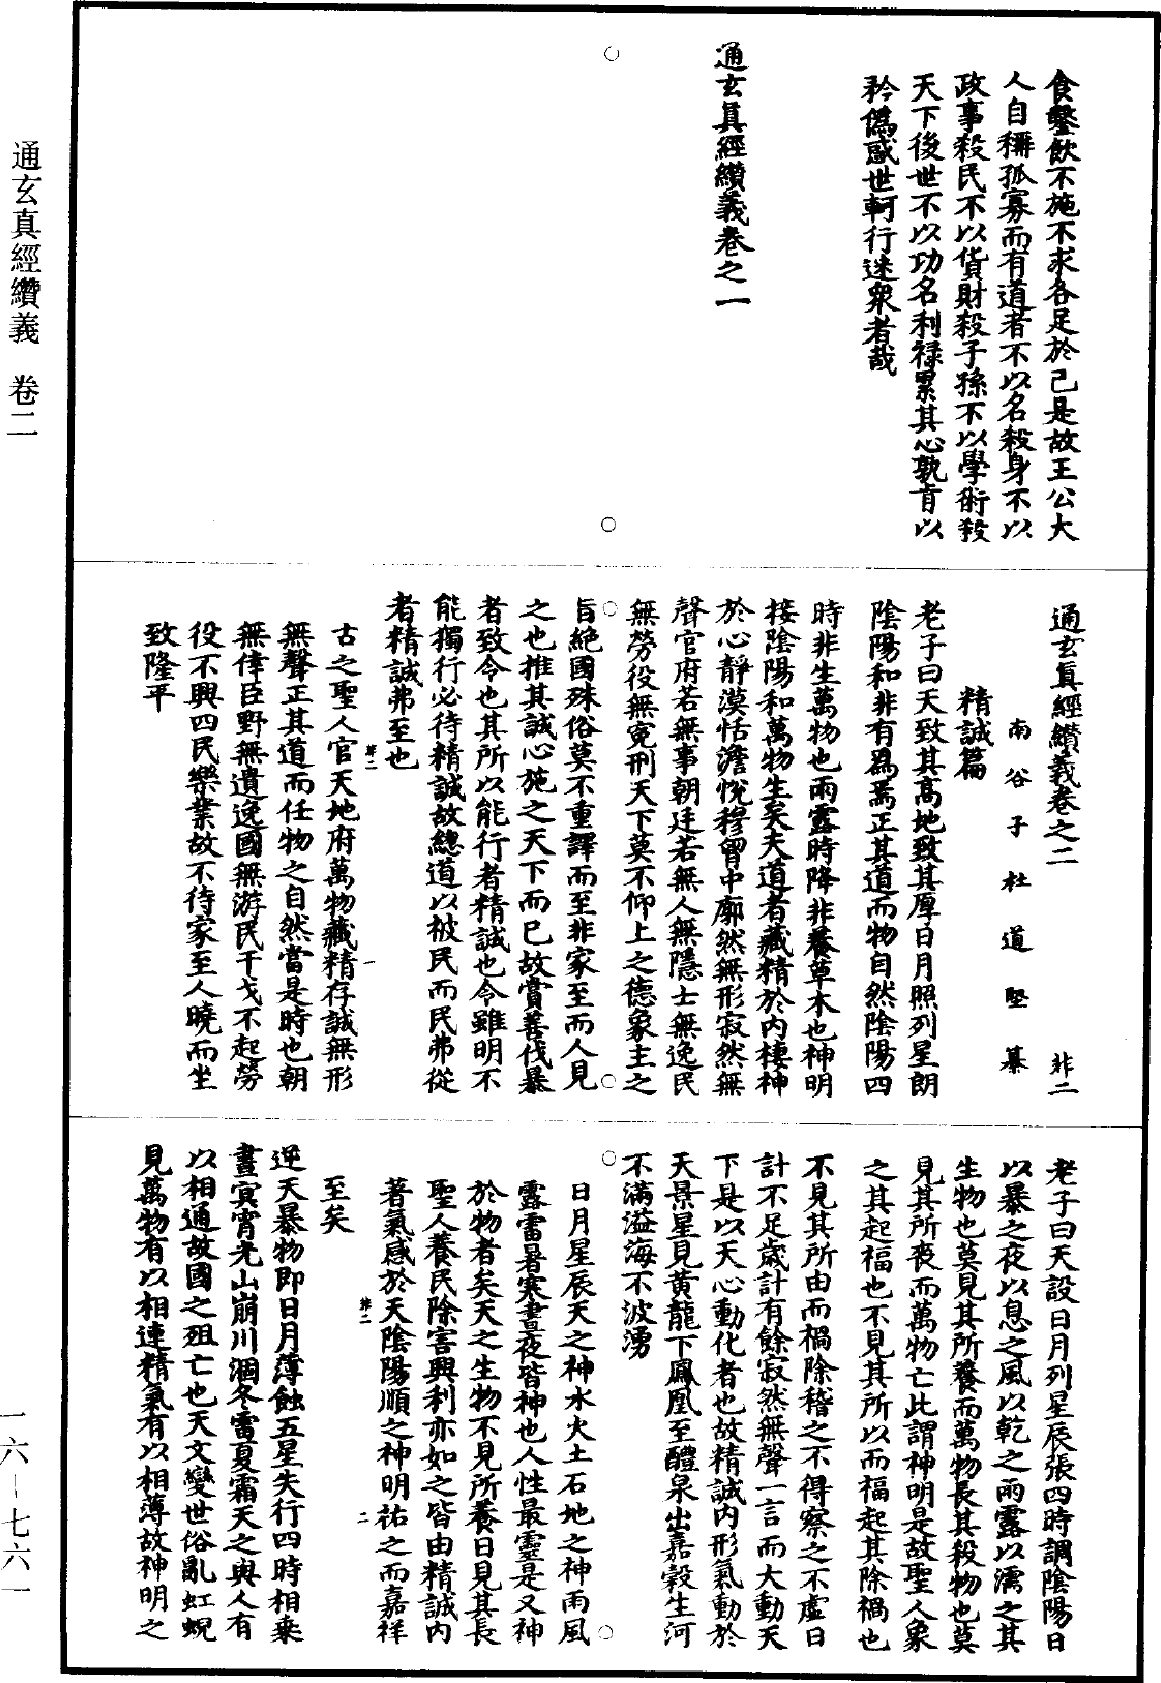 食鑿飲不施不求各足於己是故王公大
人自稱孤寡而有道者不以名殺身不以
政事殺民不以貨財殺子孫不以學術殺
天下後世不以功名利祿累其心孰肯以
矜偽惑世軻行迷衆者哉
通玄真經纘義卷之一
通玄真經纘義卷之二
南谷子杜道堅纂
精誠篇
老子曰天致其高地致其厚日月照列星朗
陰陽和非有爲焉正其道而物自然陰陽四
時非生萬物也雨露時降非養草木也神明
接陰陽和萬物生矣夫道者藏精於內棲神
於心靜漠恬澹悅穆胷中廓然無形寂然無
聲官府若無事朝廷若無人無隱士無逸民
無勞役無冤刑天下莫不仰上之德象主之
旨絕國殊俗莫不重譯而至非家至而人見
之也推其誠心施之天下而已故賞善伐暴
者致令也其所以能行者精誠也令雖明不
能獨行必待精誠故總道以被民而民弗從
者精誠弗至也
古之聖人官天地府萬物藏精存誠無形
無聲正其道而任物之自然當是時也朝
無倖臣野無遺逸國無游民干戈不起勞
役不興四民樂業故不待家至人曉而坐
致隆平
老子曰天設日月列星辰張四時調陰陽日
以暴之夜以息之風以乾之雨露以濡之其
生物也莫見其所養而萬物長其殺物也莫
見其所喪而萬物亡此謂神明是故聖人象
之其起福也不見其所以而福起其除禍也
不見其所由而禍除稽之不得察之不虛日
計不足歲計有餘寂然無聲一言而大動天
下是以天心動化者也故精誠內形氣動於
天景星見黃龍下鳳凰至醴泉出嘉穀生河
不滿溢海不波湧
日月星辰天之神水火土石地之神雨風
露雷暑寒晝夜皆神也人性最靈是又神
於物者矣天之生物不見所養日見其長
聖人養民除害興利亦如之皆由精誠內
著氣感於天陰陽順之神明祐之而嘉祥
至矣
逆天暴物即日月薄蝕五星失行四時相乘
晝冥宵光山崩川涸冬雷夏霜天之與人有
以相通故國之殂亡也天文變世俗亂虹蜺
見萬物有以相連精氣有以相薄故神明之
通玄真經纘義　卷二
一六－七六一